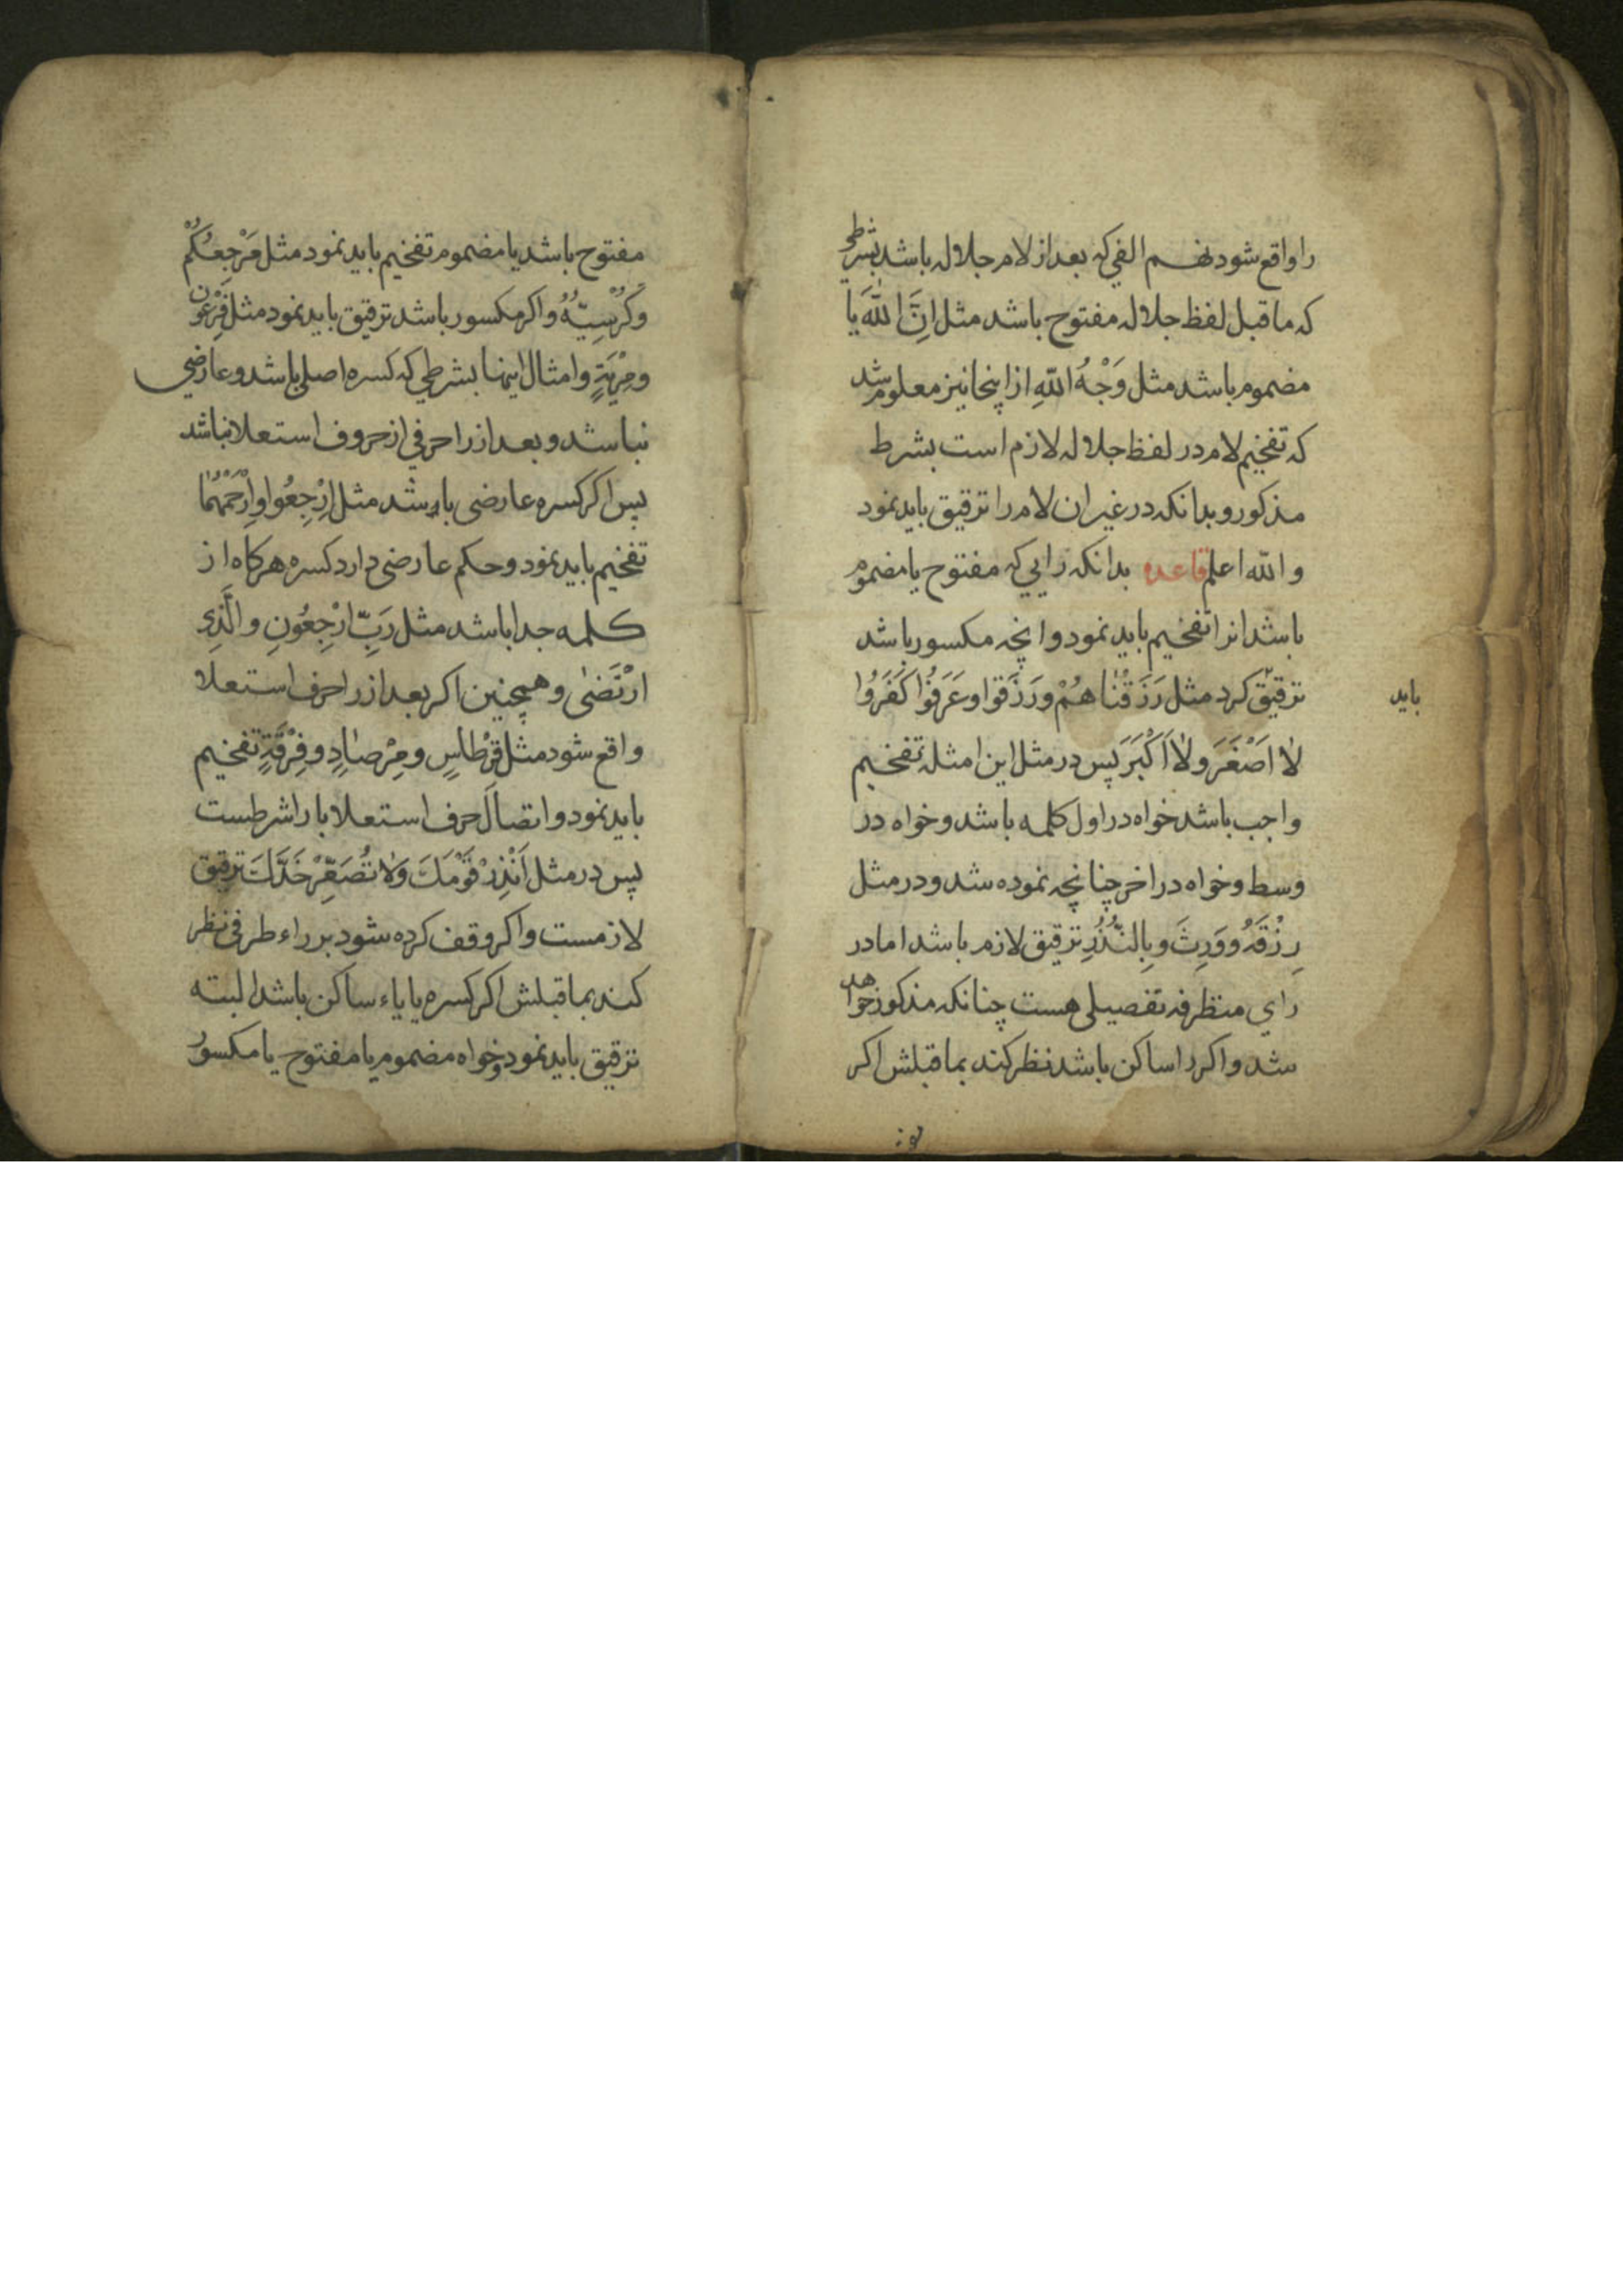 را واقع شود نهم الفی که بعد از لام جلاله باشد بشرطی
که ما قبل لفظ جلاله مفتوح باشد مثل اِنَّ اللّٰهَ یا
مضموم باشد مثل وَجْهُ اللّهِ از اینجا نیز معلوم شد
که تفخیم لام در لفظ جلاله لازم است بشرط
مذکور و بدانکه در غیر ان لام را ترقیق باید نمود
و الله اعلم قاعده بدانکه رایی که مفتوح یا مضموم
باشد انرا تفخیم باید نمود و انچه مکسور باشد
ترقیق کرد مثل رَزَقْنَاهُمْ و رَزَقوا و عَرَفُوا كَفَرُوا
باید
لاٰ اَصْغَرَ ولاٰ اَكْبَرَ پس در مثل این امثله تفخیم
واجب باشد خواه در اول کلمه باشد و خواه در
وسط و خواه در اخر چنانچه نموده شد و در مثل
رِزْقَهُ و وَرِثَ و بِالنُّذُرِ ترقیق لازم باشد اما در
رای متطرفه تفصیلی هست چنانکه مذکور خواهد
شد و اکر را ساکن باشد نظر کند بما قبلش اکر
مفتوح باشد یا مضموم تفخیم باید نمود مثل مَرْجِعُكُمْ
و كُرْسِيُّهُ و اکر مکسور باشد ترقیق باید نمود مثل فِرْعَوْن
و مِرْيَةٍ و امثال اینها بشرطی که کسره اصلی باشد و عارضی
نباشد و بعد از را حرفی از حروف استعلا نباشد
پس اکر کسره عارضی باشد مثل اِرْجِعُوا و اِرْحَمْهُمٰا
تفخیم باید نمود و حکم عارضی دارد کسره هرکاه از
کلمه جدا باشد مثل رَبِّ ارْجِعُونِ و الَّذِي
ارْتَضٰى و همچنین اکر بعد از را حرف استعلا
واقع شود مثل قِرْطٰاسٍ و مِرْصٰادٍ و فِرْقَةٍ تفخیم
باید نمود و اتصال حرف استعلا با را شرطست
پس در مثل اَنْذِرْ قَوْمَكَ وَلاٰ تُصَعِّرْ خَدَّكَ ترقیق
لازمست و اکر وقف کرده شود بر راء طرفی نظر
کند بما قبلش اکر کسره یا یاء ساکن باشد البته
ترقیق باید نمود و خواه مضموم یا مفتوح یا مکسور